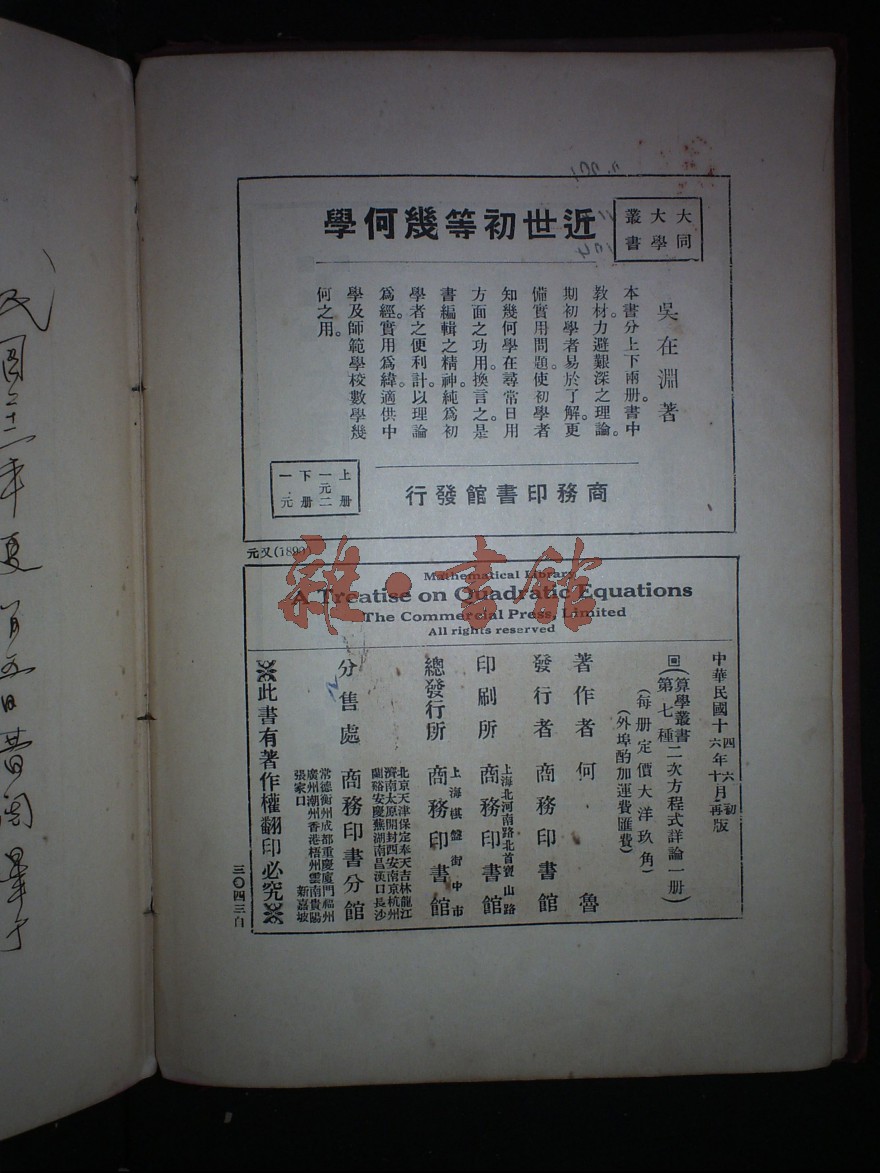 大同
大學
叢書
近世初等幾何學
吳在淵著
本書分上下兩册。書中
教材。力避艱深之理論。
期初學者易於了解。更
備實用問題。使初學者
知幾何學在尋常日用
方面之功用。換言之。是
書編輯之精神。純爲初
學者之便利計。以理論
爲經。實用爲緯。適供中
學及師範學校數學幾
何之用。
商務印書館發行
上册
一元二
下册
一元
元又(189
雜·書館
Mathematical Library
A Treatise on Quadratic Equations
The Commercial Press, Limited
All rights reserved
中華民國十四年六月初版
中華民國十六年十月再版
回(算學叢書第七種二次方程式詳論一册)
(每册定價大洋玖角)
(外埠酌加運費匯費)
著作者 何魯
發行者 商務印書館
印刷所 上海北河南路北首寶山路 商務印書館
總發行所 上海棋盤街中市 商務印書館
分售處 商務印書分館
北京天津保定奉天吉林龍江
濟南太原開封西安南京杭州
蘭谿安慶蕪湖南昌漢口長沙
常德衡州成都重慶廈門福州
廣州潮州香港梧州雲南貴陽
張家口 新嘉坡
※此書有著作權翻印必究※
三〇四三自